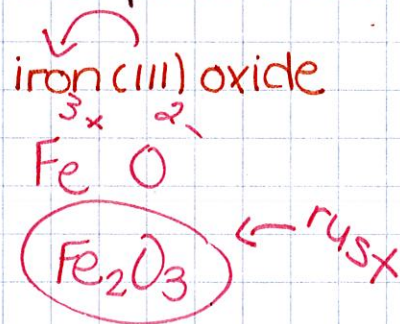 iron(III) oxide
3+ 2-
Fe O
Fe2O3 ← rust